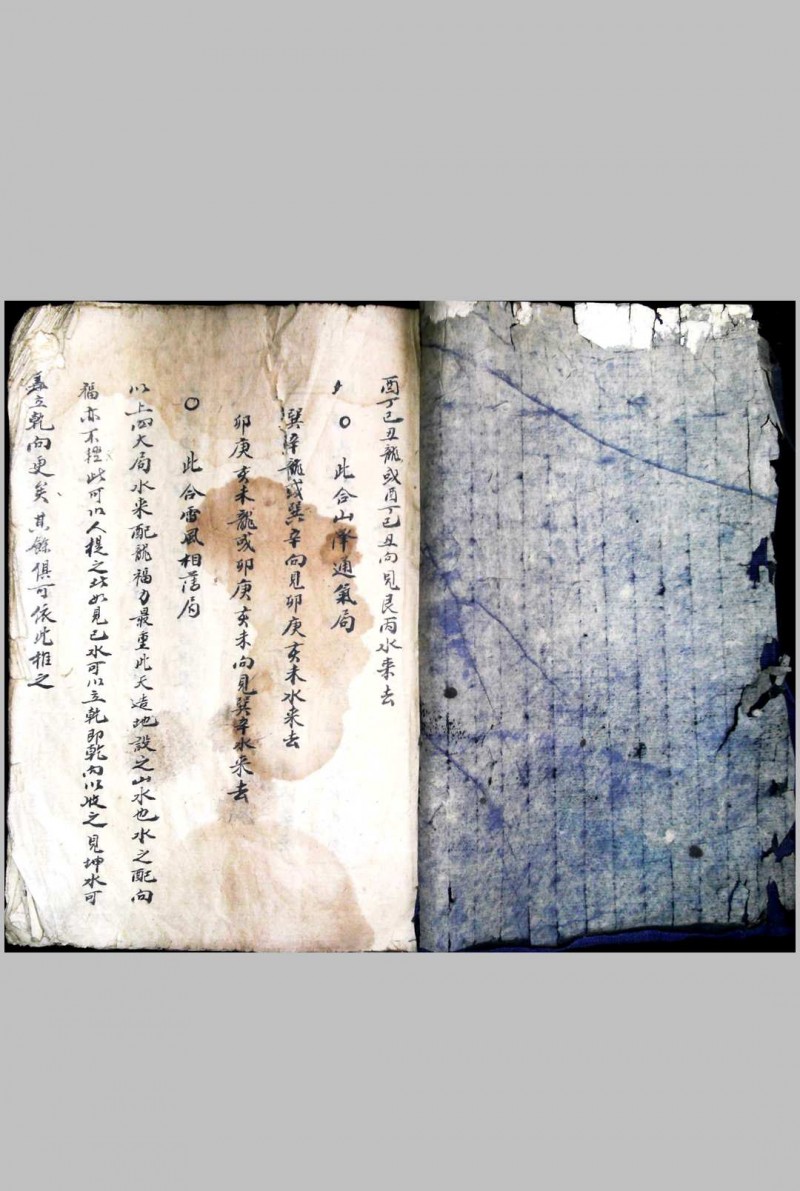 酉丁巳丑龍或酉丁巳丑向見艮丙水来去
○ 此合山澤通氣局
巽辛龍或巽辛向見卯庚亥未水来去
卯庚亥未龍或卯庚亥未向見巽辛水来去
○ 此合雷風相薄局
以上四大局水来配龍福力最重此天造地設之山水也水之配向
福亦不輕此可以人提之功如見巳水可以立乾即乾向以收之見坤水可
立乾向更矣其餘俱可依此推之